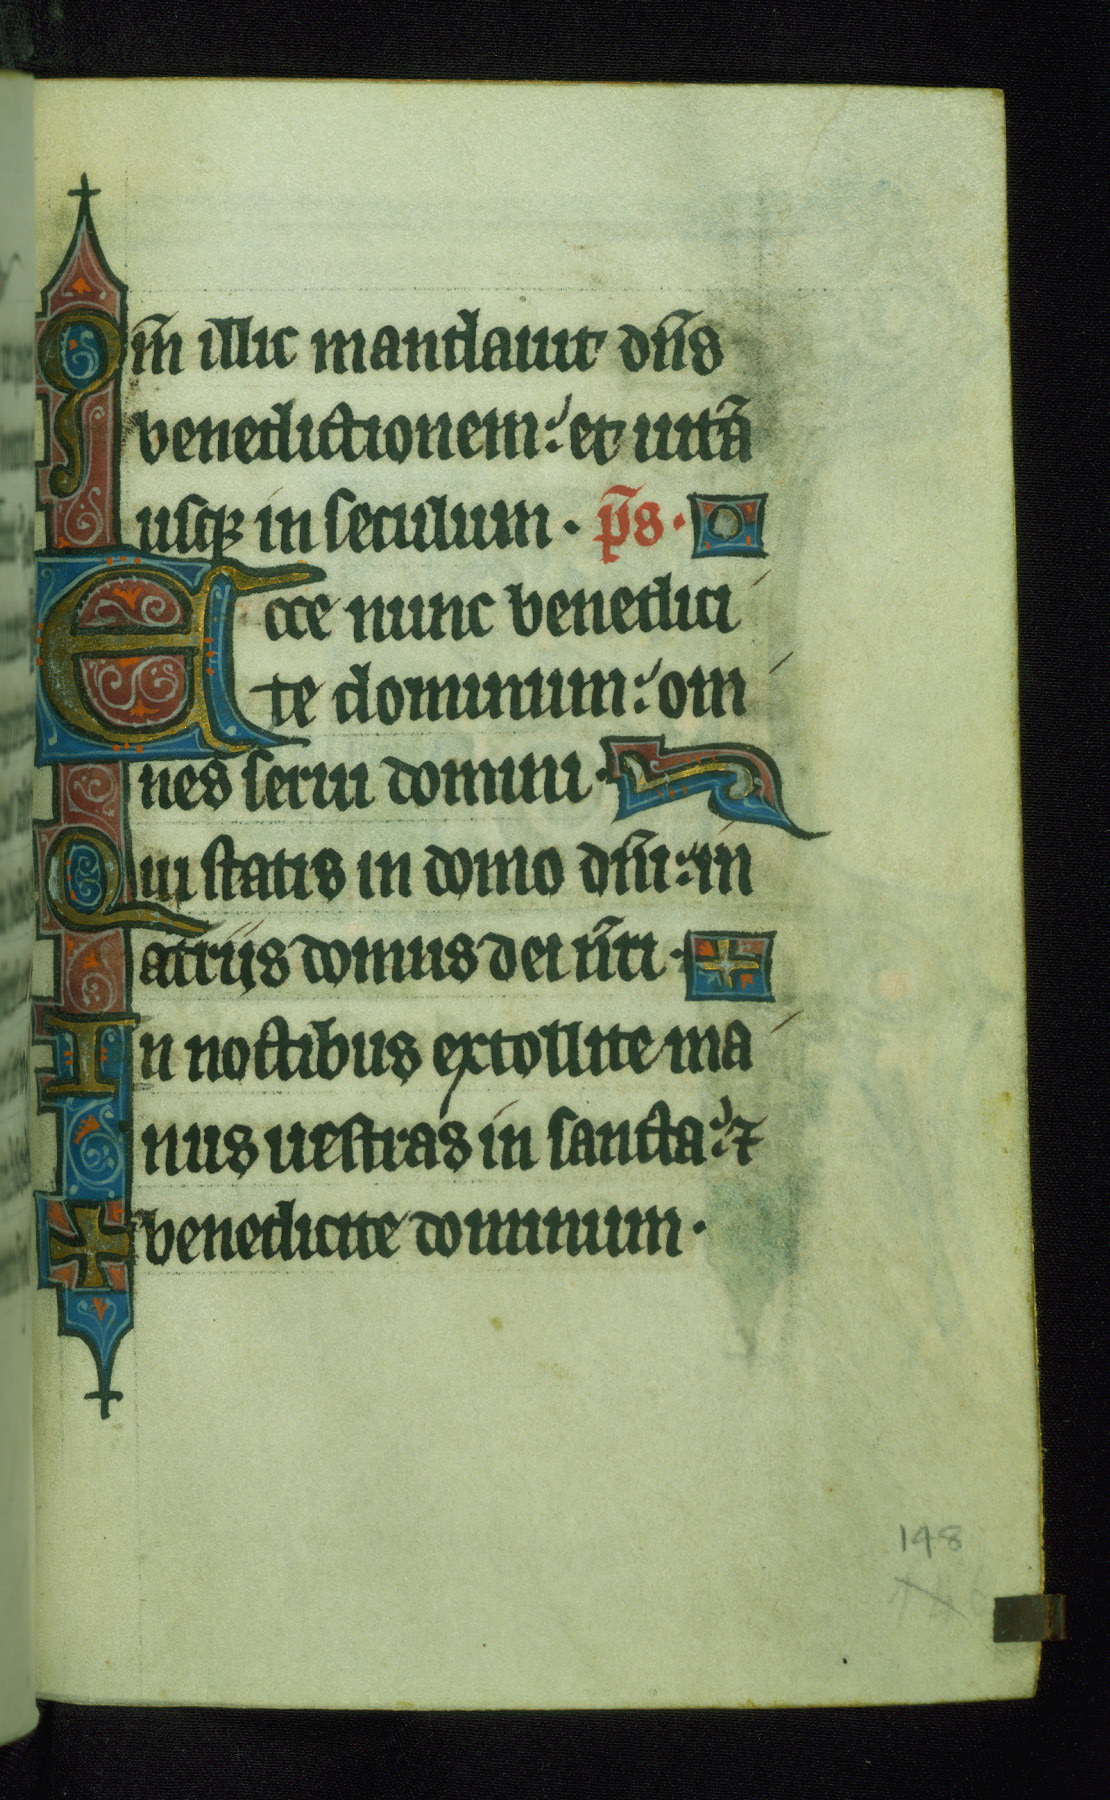 Qm̄ illic mandauit dñs
benedictionem: et uitā
usq; in seculum. p̄s.
Ecce nunc benedici
te dominum: om
nes serui domini.
Qui statis in domo dñi: in
atriis domus dei nr̄i.
In noctibus extollite ma
nus uestras in sancta: ⁊
benedicite dominum.
148